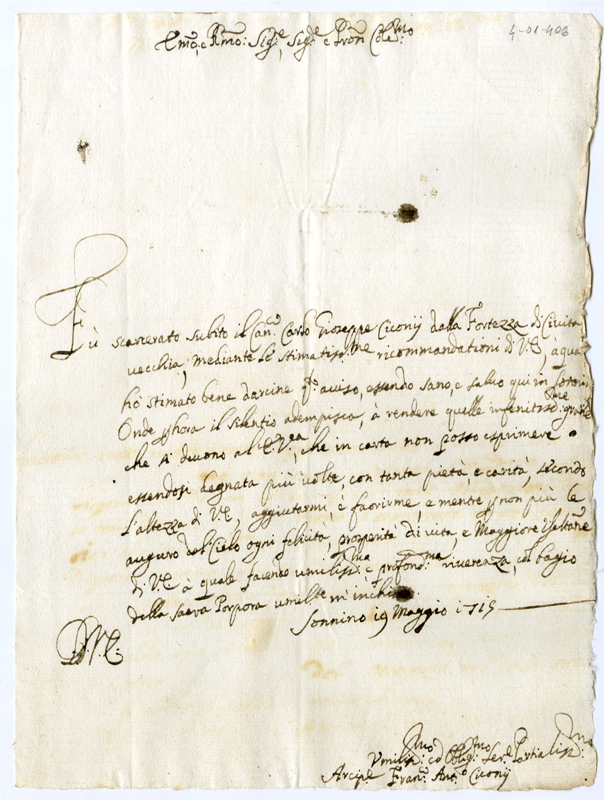 4-01-406
Em̃o, e R̃mo: Sig.e, Sig.e e Pron̄ Col.mo
Fù scarcerato subito il Can.o Carlo Gioseppe Ciconij dalla Fortezza di Civita
vecchia, mediante le stimatiss.me ricommandationi di V.E., a qua
hò stimato bene darcine q.o aviso, essendo sano, e salvo qui in
Onde p hora il silentio adempisca, a rendere quelle infinitiss.me gratie
che si devono al E.V.ra, che in carta non posso esprimere
essendosi degnata più volte, con tanta pietà, e carità, secondo
l'altezza di V.E., aggiutarmi, è favorirme e mentre p non più le
auguro del Cielo ogni felicità, prosperità di vita, e Maggiore
di V.E. à quale facendo umiliss.ma e profond.ma riverenza, col bagio
della sacra Porpora umilm.te m'inchino.
Sonnino 19 Maggio 1715
D. V. E.
Umiliss.mo ed Oblig.mo Ser.e Partialiss.mo
Arcip.e Fran.o Ant.o Ciconij